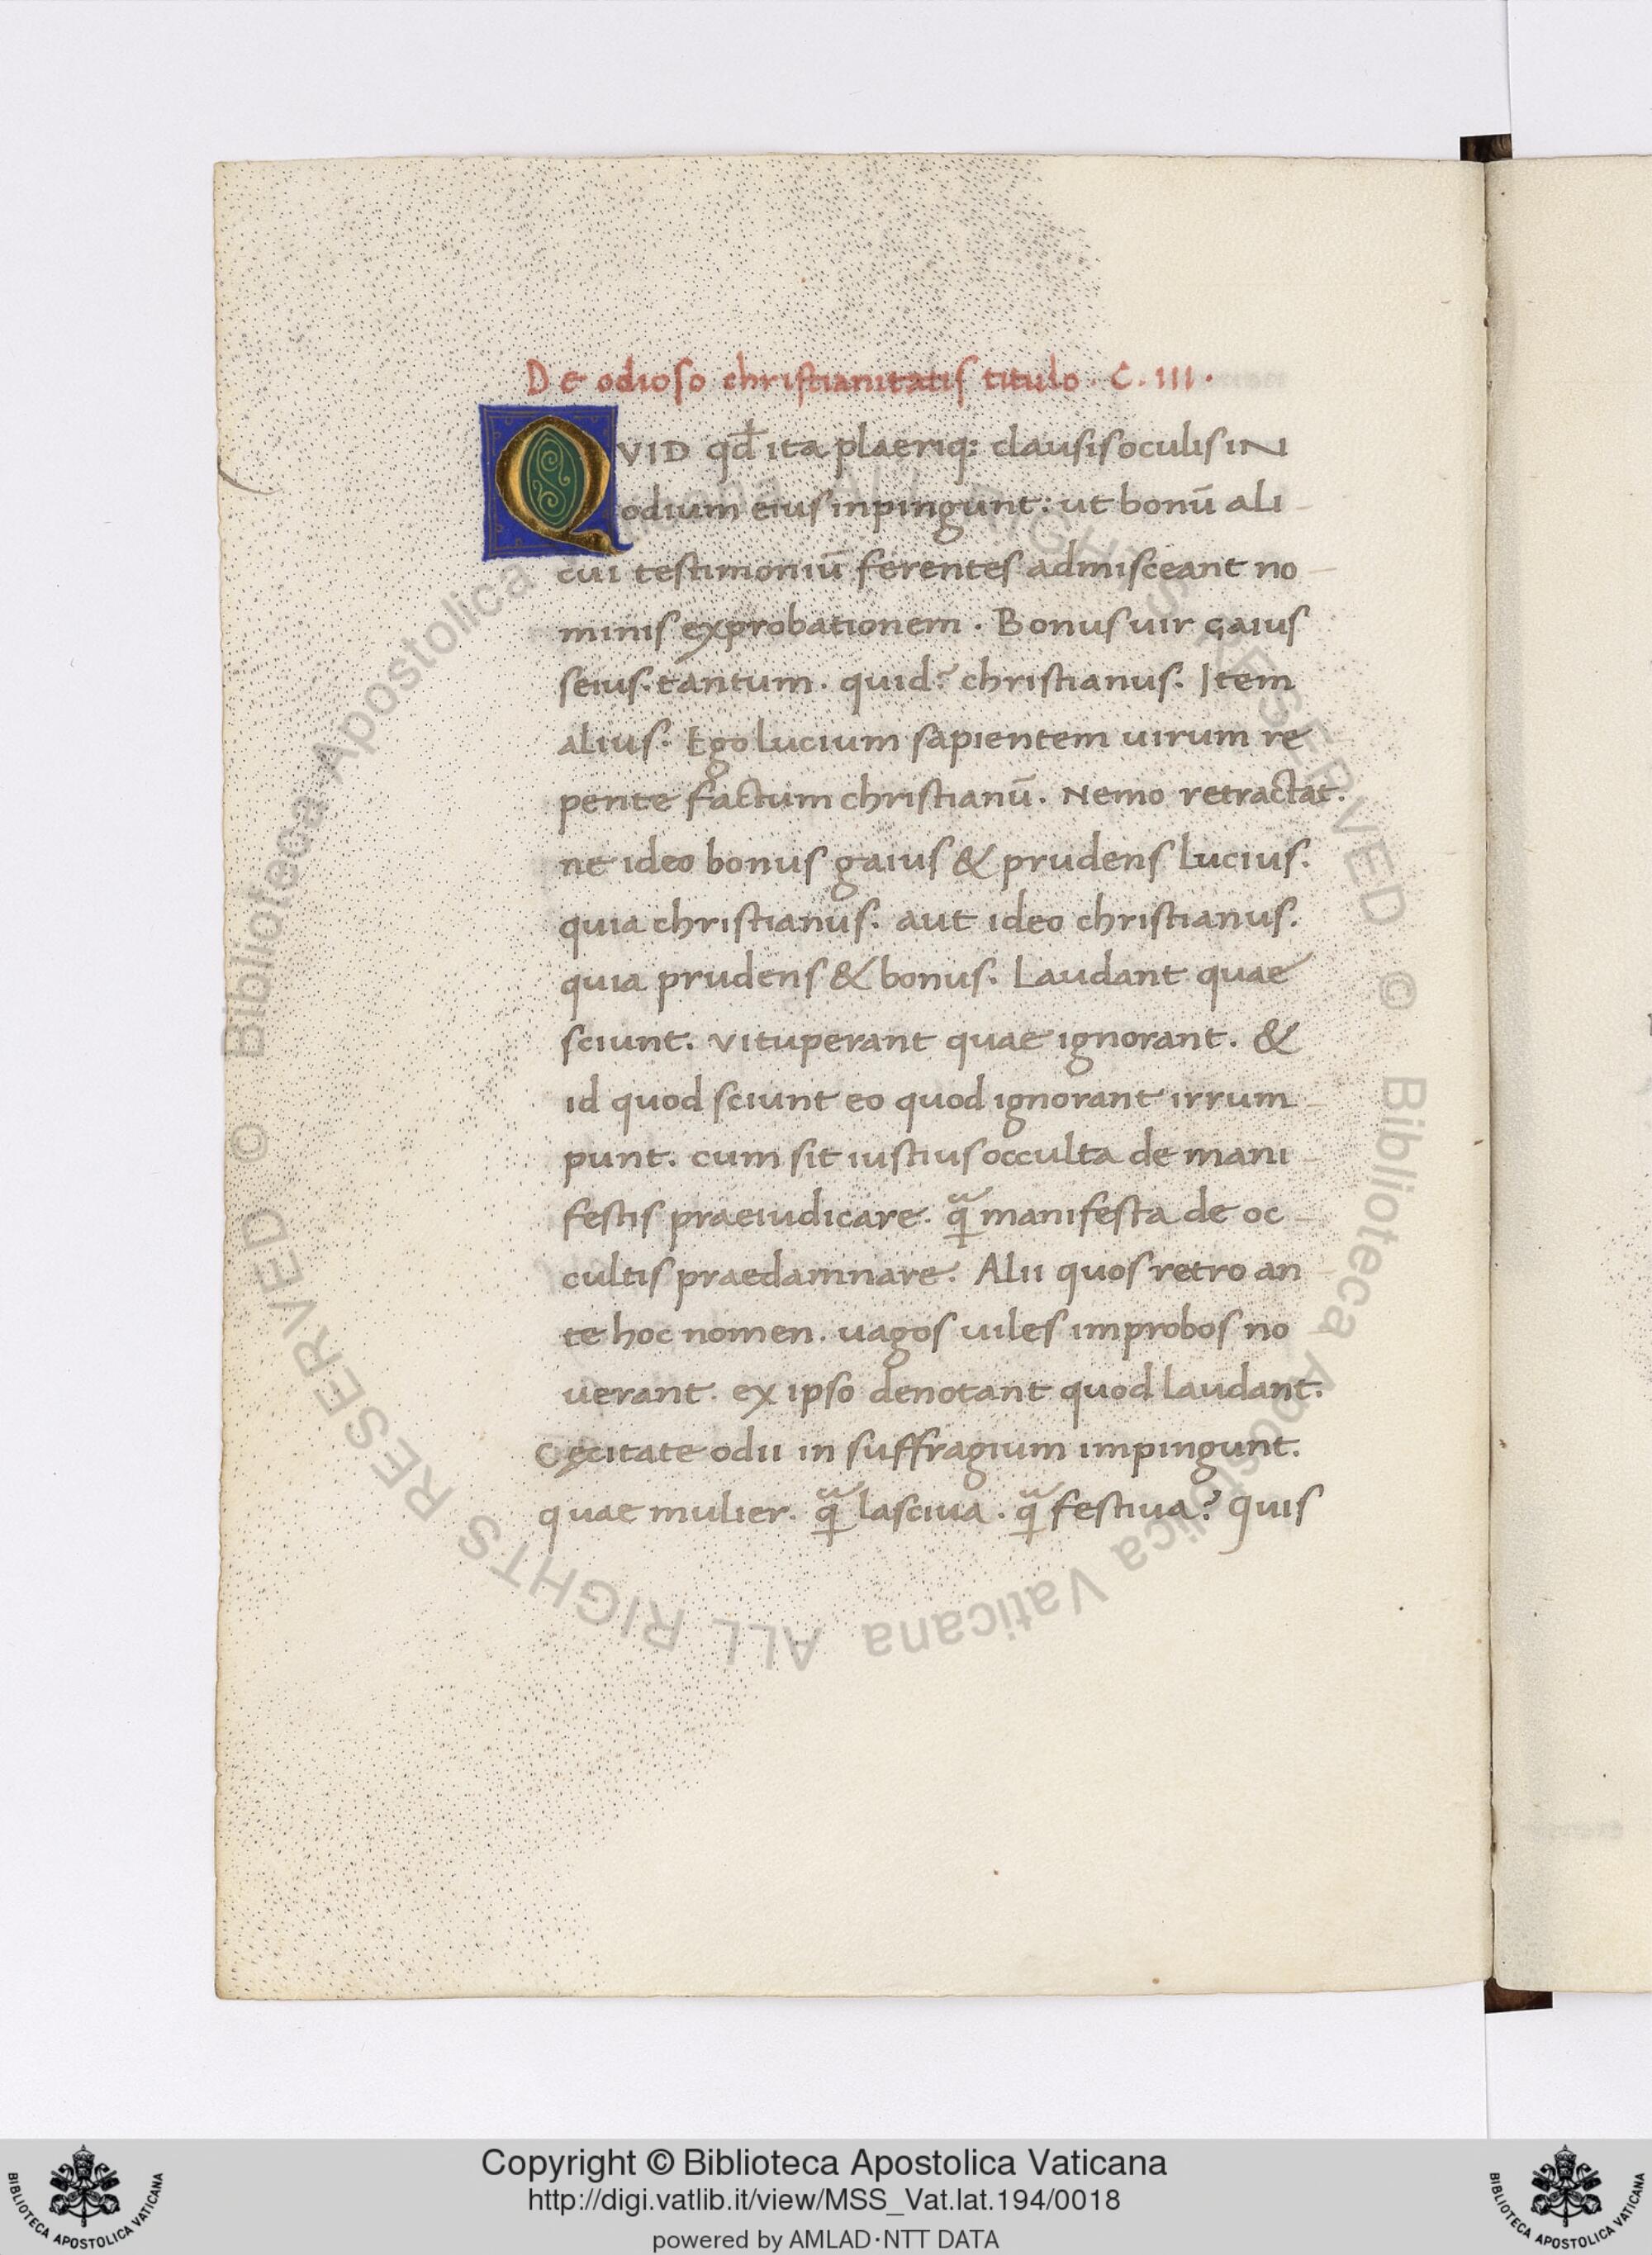 De odioso christianitatis titulo. C. III.
QVID qđ ita plaeriq; clausis oculis IN
odium eius inpingunt: ut bonū ali
cui testimoniū ferentes admisceant no
minis exprobationem. Bonus uir gaius
seius. tantum. quid? christianus. Item
alius. Ego lucium sapientem uirum re
pente factum christianū. Nemo retractat.
ne ideo bonus gaius & prudens lucius.
quia christianus. aut ideo christianus.
quia prudens & bonus. Laudant quae
sciunt. vituperant quae ignorant. &
id quod sciunt eo quod ignorant irrum
punt. cum sit iustius occulta de mani
festis praeiudicare. qᷓ manifesta de oc
cultis praedamnare. Alii quos retro an
te hoc nomen. uagos uiles improbos no
uerant. ex ipso denotant quod laudant.
Cęcitate odii in suffragium impingunt.
quae mulier. qᷓ lasciua. qᷓ festiua? quis
© Biblioteca Apostolica Vaticana ALL RIGHTS RESERVED © Biblioteca Apostolica Vaticana ALL RIGHTS RESERVED
Copyright © Biblioteca Apostolica Vaticana
http://digi.vatlib.it/view/MSS_Vat.lat.194/0018
powered by AMLAD·NTT DATA
BIBLIOTECA APOSTOLICA VATICANA
BIBLIOTECA APOSTOLICA VATICANA